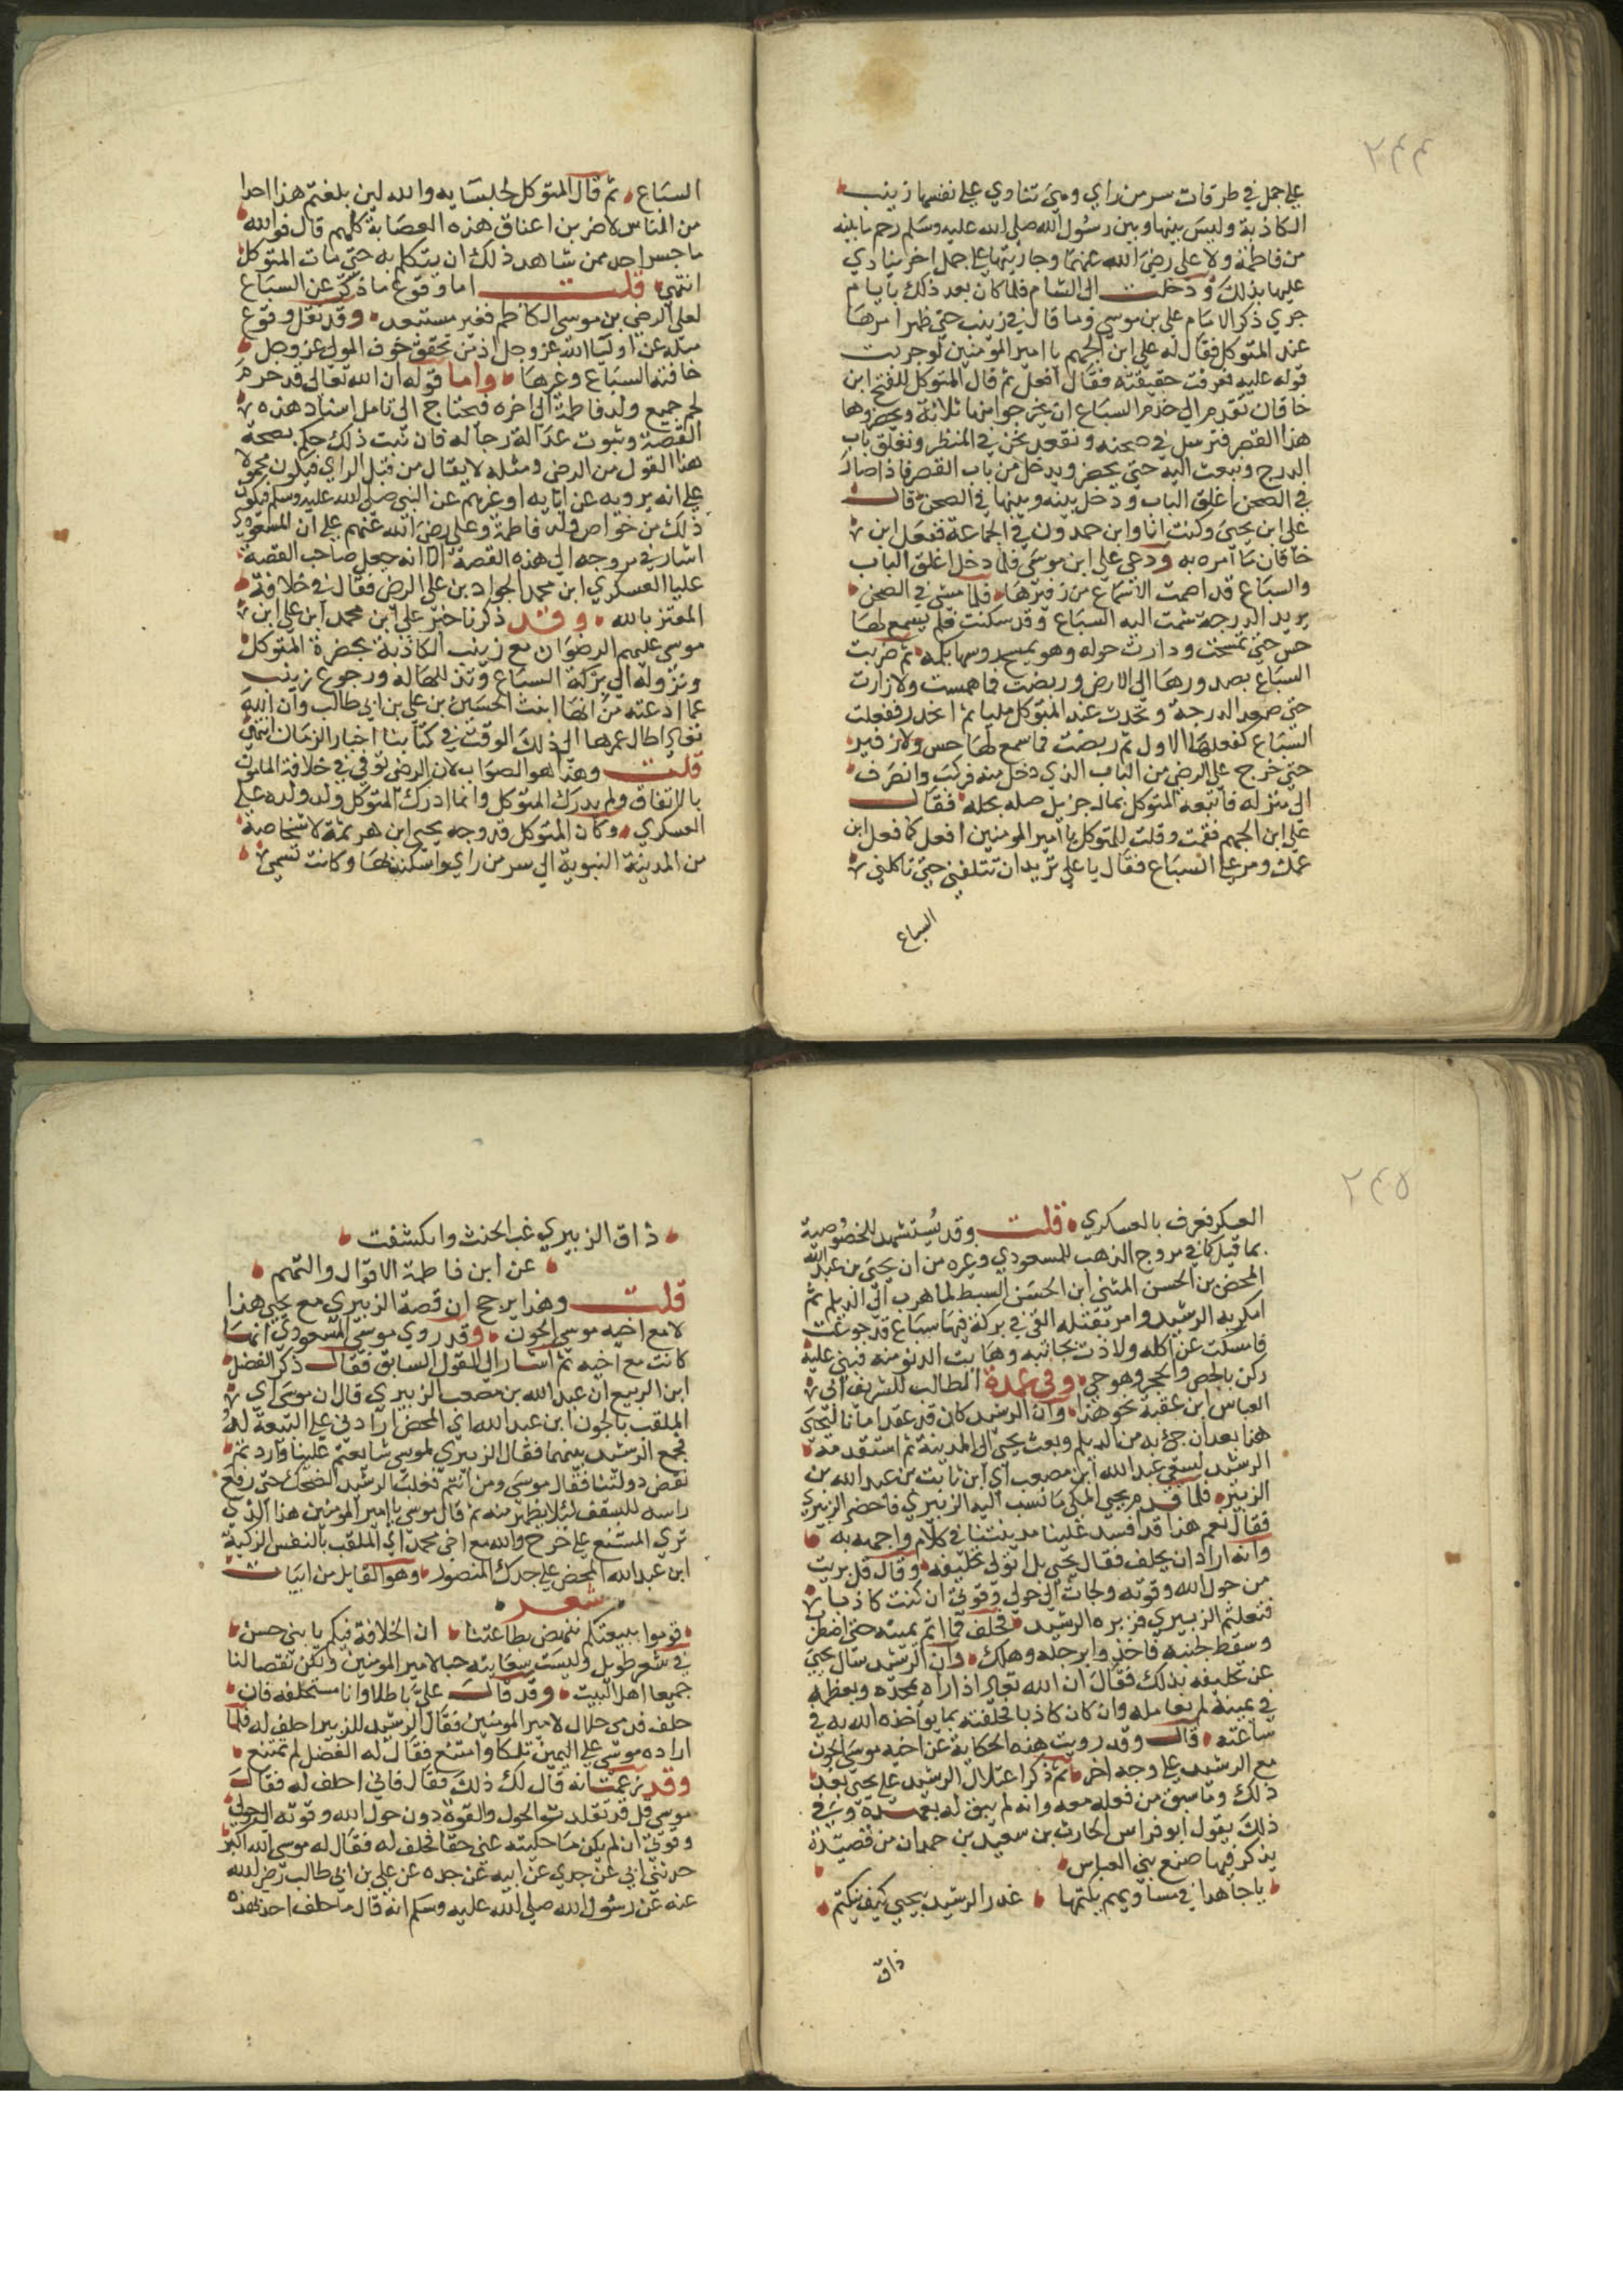 ٢٤٤
على جمل في طرقات سر من راي وهي تنادي على نفسها زينب
الكاذبة وليس بينها وبين رسول الله صلى الله عليه وسلم رحم ما بينه
من فاطمة ولا على رضي الله عنهما وجاريتها على جمل اخر ينادي
عليها بذلك ودخلت الى الشام فلما كان بعد ذلك بايام
جري ذكر الامام علي بن موسى وما قال في زينب حتى ظهر امرها
عند المتوكل فقال له على ابن الجهم يا امير المؤمنين لو جربت
قوله عليه فعرفت حقيقته فقال افعل ثم قال المتوكل للفتح ابن
خاقان تقدم الى خدم السباع ان يخرجوا منها ثلاثة ويحضروها
هذا القصر فترسل في صحنه ونقعد نحن في المنظر ونغلق باب
الدرج ونبعث اليه حتى يحضر ويدخل من باب القصر فاذا صار
في الصحن اغلق الباب ودخل بينه وبينها في الصحن قال
على ابن يحيى وكنت انا وابن حمدون في الجماعة ففعل ابن
خاقان ما امره به ودعى على ابن موسى فلما دخل اغلق الباب
والسباع قد اصمت الاسماع من زفيرها فلما مشى في الصحن
يريد الدرجة مشت اليه السباع وقد سكنت فلم يسمع لها
حس حتى تمسحت ودارت حوله وهو يمسح روسها بكمه ثم ضربت
السباع بصدورها الى الارض وربضت فما همست ولا زارت
حتى صعد الدرجة وتحدث عند المتوكل مليا ثم انحدر ففعلت
السباع كفعلها الاول ثم ربضت فما سمع لها حس ولا زفير
حتى خرج على الرضي من الباب الذي دخل منه فركب وانصرف
الى منزله فاتبعه المتوكل بمال جزيل صله بحله فقال
على ابن الجهم فقمت وقلت للمتوكل يا امير المومنين افعل كما فعل ابن
عمك ومر على السباع فقال يا على تريد ان تتلفني حتى تاكلني
السباع
السباع ثم قال المتوكل لجلسايه والله لين بلغتم هذا احدا
من الناس لاضربن اعناق هذه العصابة كلهم قال فوالله
ما جسر احد ممن شاهد ذلك ان يتكلم به حتى مات المتوكل
انتهى قلت اما وقوع ما ذكر عن السباع
لعلى الرضي بن موسى الكاظم فغير مستبعد وقد نقل وقوع
مثله عن اوليا الله عز وجل اذ من تحقق خوف المولى عز وجل
خافته السباع وغيرها واما قوله ان الله تعالى قد حرم
لحم جميع ولد فاطمة الى اخره فيحتاج الى تامل اسناد هذه
القصة وثبوت عدالة رجاله فان ثبت ذلك حكم بصحة
هذا القول من الرضي ومثله لا يقال من قبل الراي فيكون محمولا
على انه يرويه عن ابايه او غيرهم عن النبي صلى الله عليه وسلم فيكون
ذلك من خواص ولد فاطمة وعلى رضي الله عنهم على ان المسعودي
اشار في مروجه الى هذه القصة الا انه جعل صاحب القصة
عليا العسكري ابن محمد الجواد بن على الرضي فقال في خلافة
المعتز بالله وقد ذكرنا خبر على ابن محمد ابن على ابن
موسى عليهم الرضوان مع زينب الكاذبة بحضرة المتوكل
ونزوله الى بركة السباع وتذللها له ورجوع زينب
عما ادعته من انها ابنت الحسين بن على بن ابي طالب وان الله
تعالى اطال عمرها الى ذلك الوقت في كتابنا اخبار الزمان انتهى
قلت وهذا هو الصواب لان الرضي توفي في خلافة المامون
بالاتفاق ولم يدرك المتوكل وانما ادرك المتوكل ولد ولده على
العسكري وكان المتوكل قد وجه يحيى ابن هرثمة لاشخاصه
من المدينة النبوية الى سر من راي واسكنه بها وكانت تسمى
٢٤٥
العسكر فعرف بالعسكري قلت وقد يستشهد للخصوصية
بما قيل كما في مروج الذهب للمسعودي وغيره من ان يحيى بن عبد الله
المحض بن الحسن المثنى ابن الحسن السبط لما هرب الى الديلم ثم
امكر به الرشيد وامر بقتله القي في بركة فيها سباع قد جوعت
فامسكت عن اكله ولاذت بجانبه وهابت الدنو منه فبنى عليه
ركن بالجص والحجر وهو حي وفي عمدة المطالب للشريف ابي
العباس ابن عقبة نحو هذا وان الرشيد كان قد عقد امانا ليحيى
هذا بعد ان جئ به من الديلم وبعث يحيى الى المدينة ثم استقدمه
الرشيد لسعي عبد الله ابن مصعب اي ابن ثابت بن عبد الله بن
الزبير فلما قدم يحيى المكي ما نسب اليه الزبيري فاحضر الزبيري
فقال نعم هذا قد افسد علينا مدينتنا في كلام واجهه به
وانه اراد ان يحلف فقال يحيى بل اتولى تحليفه وقال قل بريت
من حول الله وقوته ولجات الى حولي وقوتي ان كنت كاذبا
فتعلثم الزبيري فزبره الرشيد فحلف فما اتم يمينه حتى اضطرب
وسقط لجنبه فاخذوا برجله وهلك وان الرشيد سال يحيى
عن تحليفه بذلك فقال ان الله تعالى اذا راه يمجده ويعظمه
في يمينه لم يعامله وان كان كاذبا فحلفته بما يواخذه الله به في
ساعته قال وقد رويت هذه الحكاية عن اخيه موسى الجون
مع الرشيد على وجه اخر ثم ذكر اعتلال الرشيد على يحيى بعد
ذلك وما سبق من فعله معه وانه لم يبق له بعهده وفي
ذلك يقول ابو فراس الحارث بن سعيد بن حمدان من قصيدة
يذكر فيها صنع بني العباس
يا جاهدا في مساويهم يكتمها غدر الرشيد بيحيى كيف ينكتم
ذاق
ذاق الزبيري غب الحنث وانكشفت
عن ابن فاطمة الاقوال والتهم
قلت وهذا يرجح ان قصة الزبيري مع يحيى هذا
لا مع اخيه موسى الجون وقد روي موسى المسعودي انها
كانت مع اخيه ثم اشار الى القول السابق فقال ذكر الفضل
ابن الربيع ان عبد الله بن مصعب الزبيري قال ان موسى اي
الملقب بالجون ابن عبد الله اي المحض ارادني على البيعة له
فجمع الرشيد بينهما فقال الزبيري لموسى شايعتم علينا واردتم
نقض دولتنا فقال موسى ومن انتم فغلب الرشيد الضحك حتى رفع
راسه للسقف ليلا يظهر منه ثم قال موسى يا امير المومنين هذا الذي
تري المشنع على خرج والله مع اخي محمد اي الملقب بالنفس الزكية
ابن عبد الله المحض على جدك المنصور وهو القايل من ابيات
شعر
قوموا ببيعتكم ننهض بطاعتنا ان الخلافة فيكم يا بني حسن
في شعر طويل وليست سعايته حبا لامير المومنين ولكن نقصا لنا
جميعا اهل البيت وقد قال علي باطلا وانا مستحلفه فان
حلف فدمي حلال لامير المومنين فقال الرشيد للزبير احلف له فلما
اراده موسى على اليمين تلكا وامتنع فقال له الفضل لم تمتنع
وقد زعمت انه قال لك ذلك فقال فاني احلف له فقال
موسى قل قد تقلدت الحول والقوة دون حول الله وقوته الى حولي
وقوتي ان لم يكن ما حكيته عني حقا فحلف له فقال له موسى الله اكبر
حدثني ابي عن جدي عن ابيه عن جده عن علي بن ابي طالب رضي الله
عنه عن رسول الله صلى الله عليه وسلم انه قال ما حلف احد بهذه